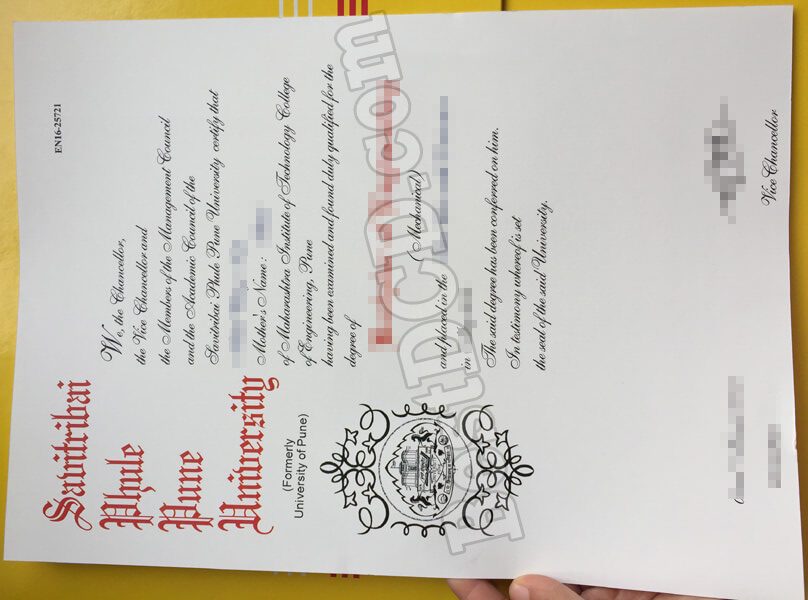 Savitribai
Phule
Pune
University
(Formerly
University of Pune)
EN16-25721
We, the Chancellor,
the Vice Chancellor and
the Members of the Management Council
and the Academic Council of the
Savitribai Phule Pune University certify that
Mother's Name:
of Maharashtra Institute of Technology College
of Engineering, Pune
having been examined and found duly qualified for the
degree of
(Mechanical)
and placed in the
in
The said degree has been conferred on him.
In testimony whereof is set
the seal of the said University.
Vice Chancellor
BestDCD.com